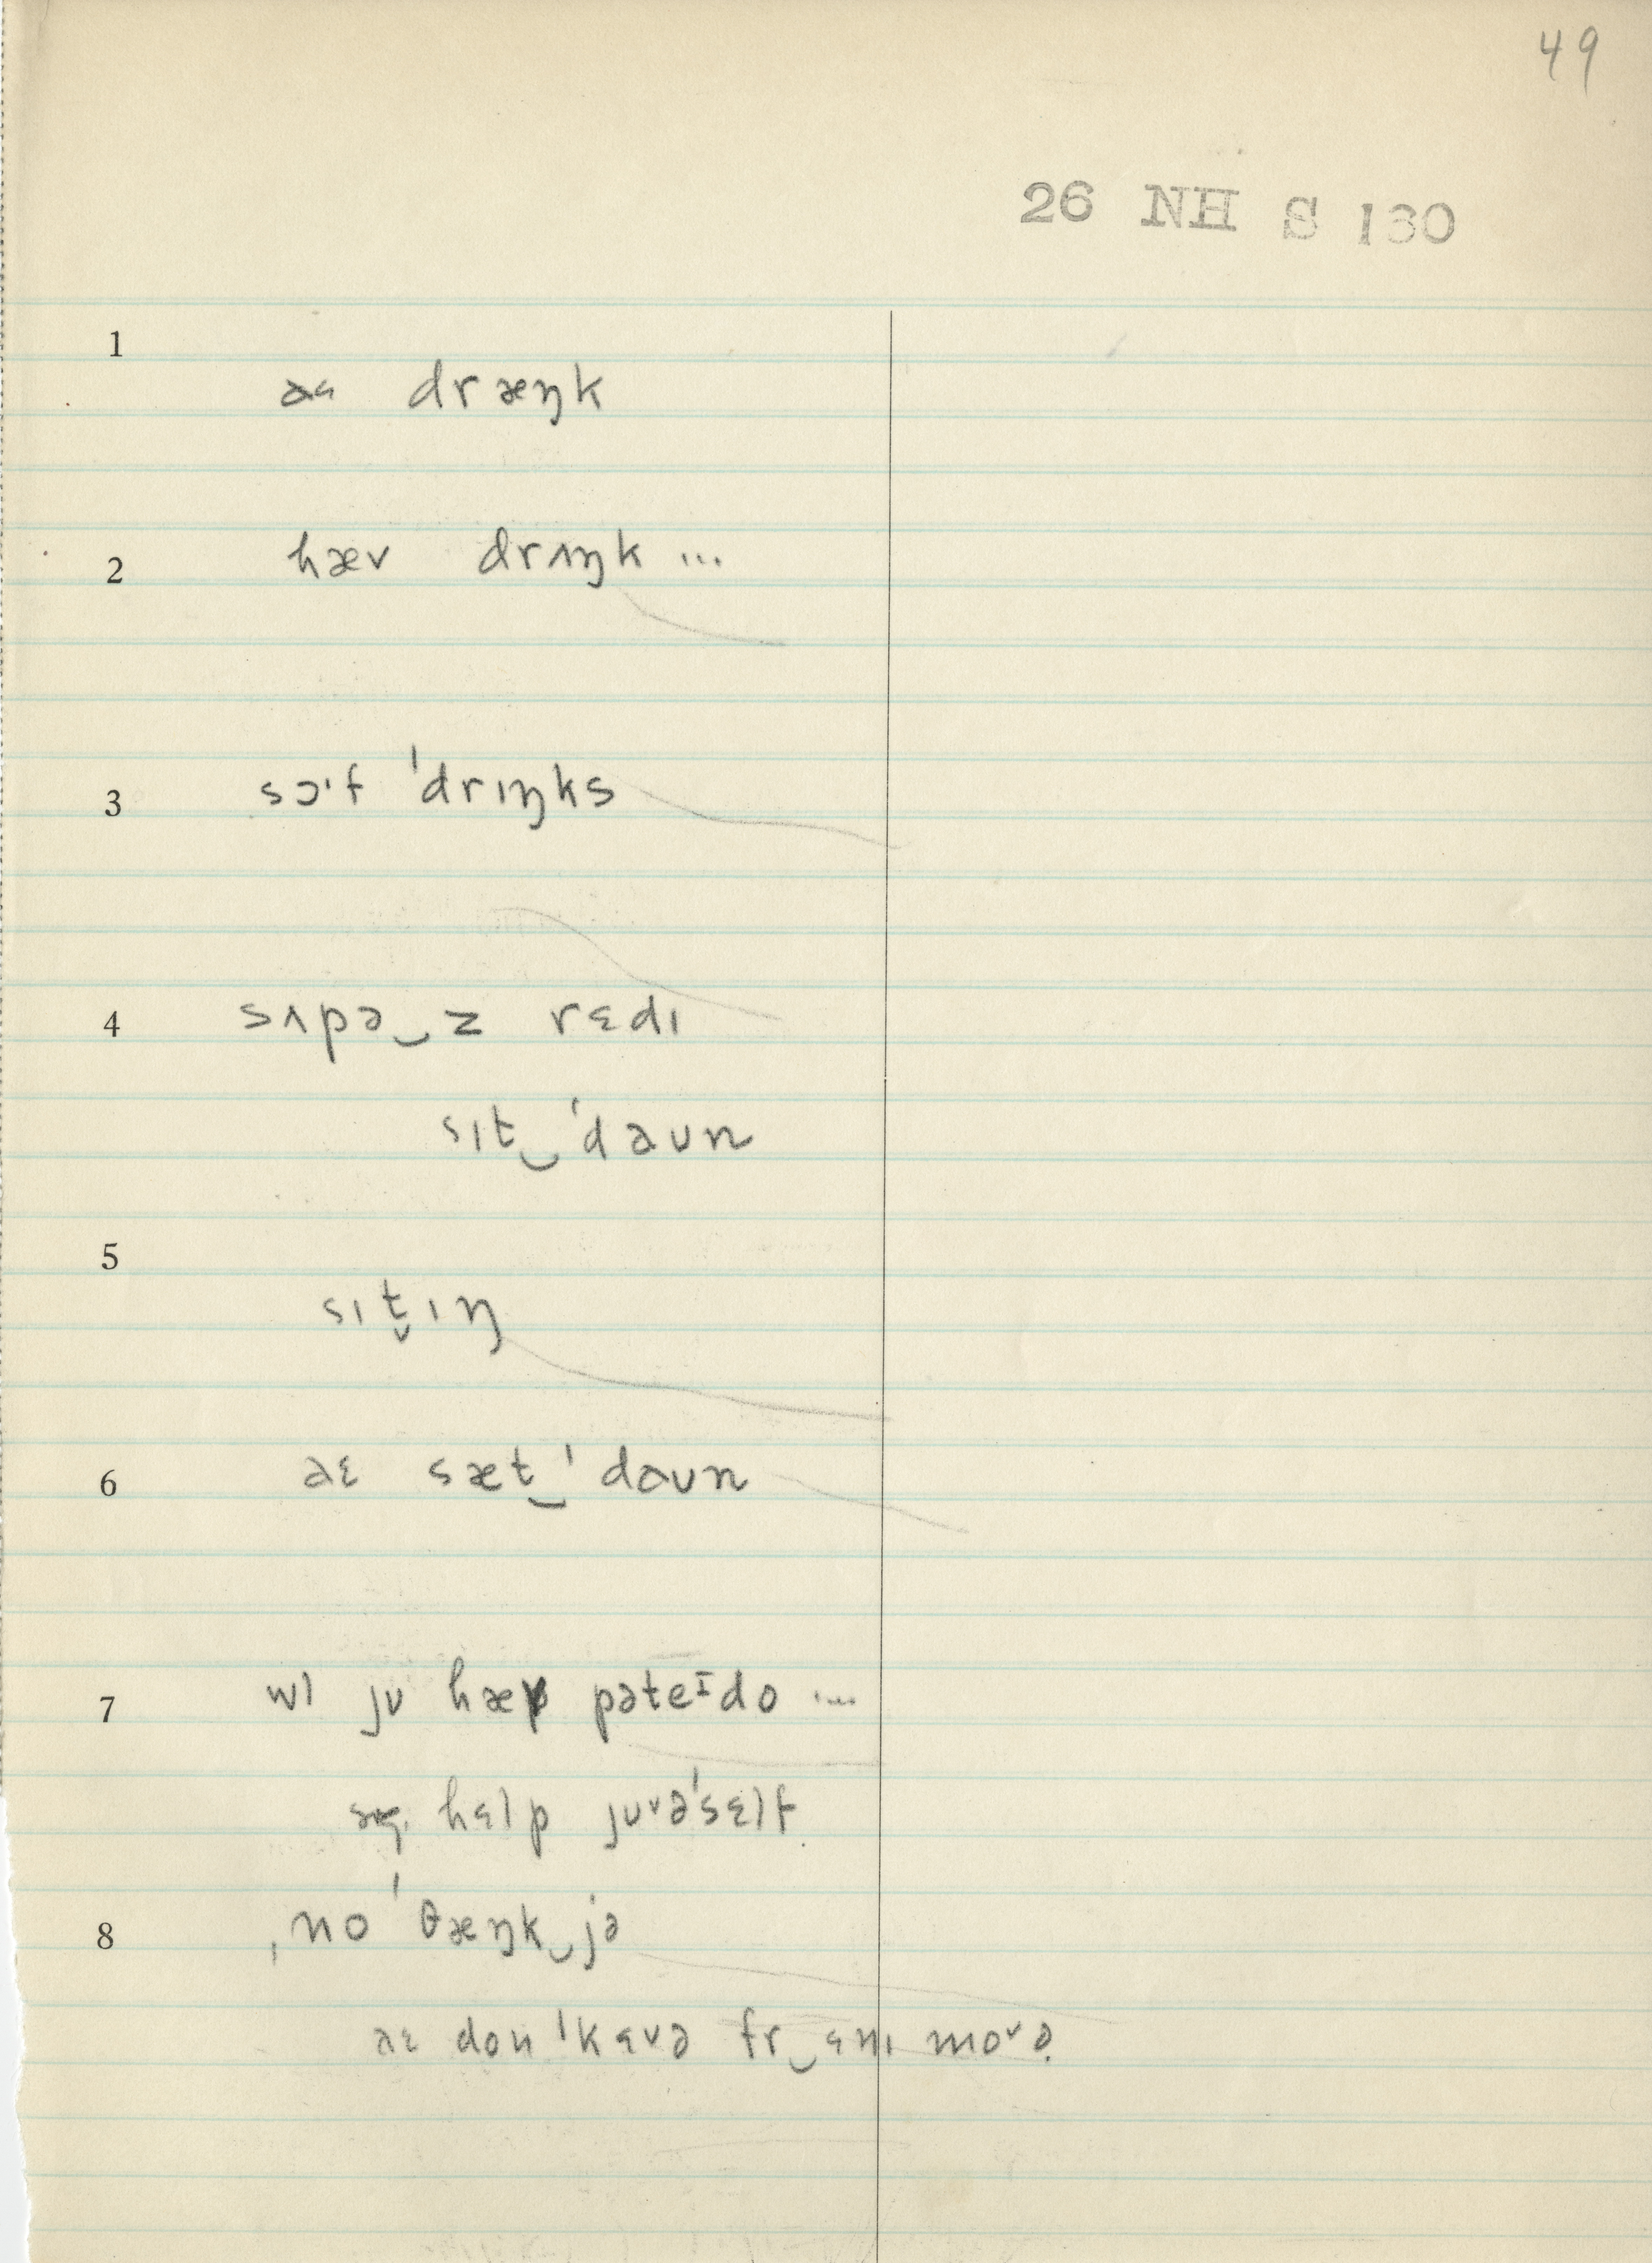 49
26 NH S 130
1
aɛ dræŋk
2
hæv drʌŋk ...
3
sɔ·f ˈdrɪŋks
4
sʌpə‿z rɛdɪ
sɪt‿ˈdaʊn
5
sɪt̬ɪŋ
6
aɛ sæt‿ˈdaʊn
7
wɪ jʊ hæv pəteᶦdo ...
hɛlp jʊᵛəˈsɛlf
8
ˌno ˈθæŋk‿jə
aɛ don ˈkɛᵛə fr‿ɛnɪ moᵛə